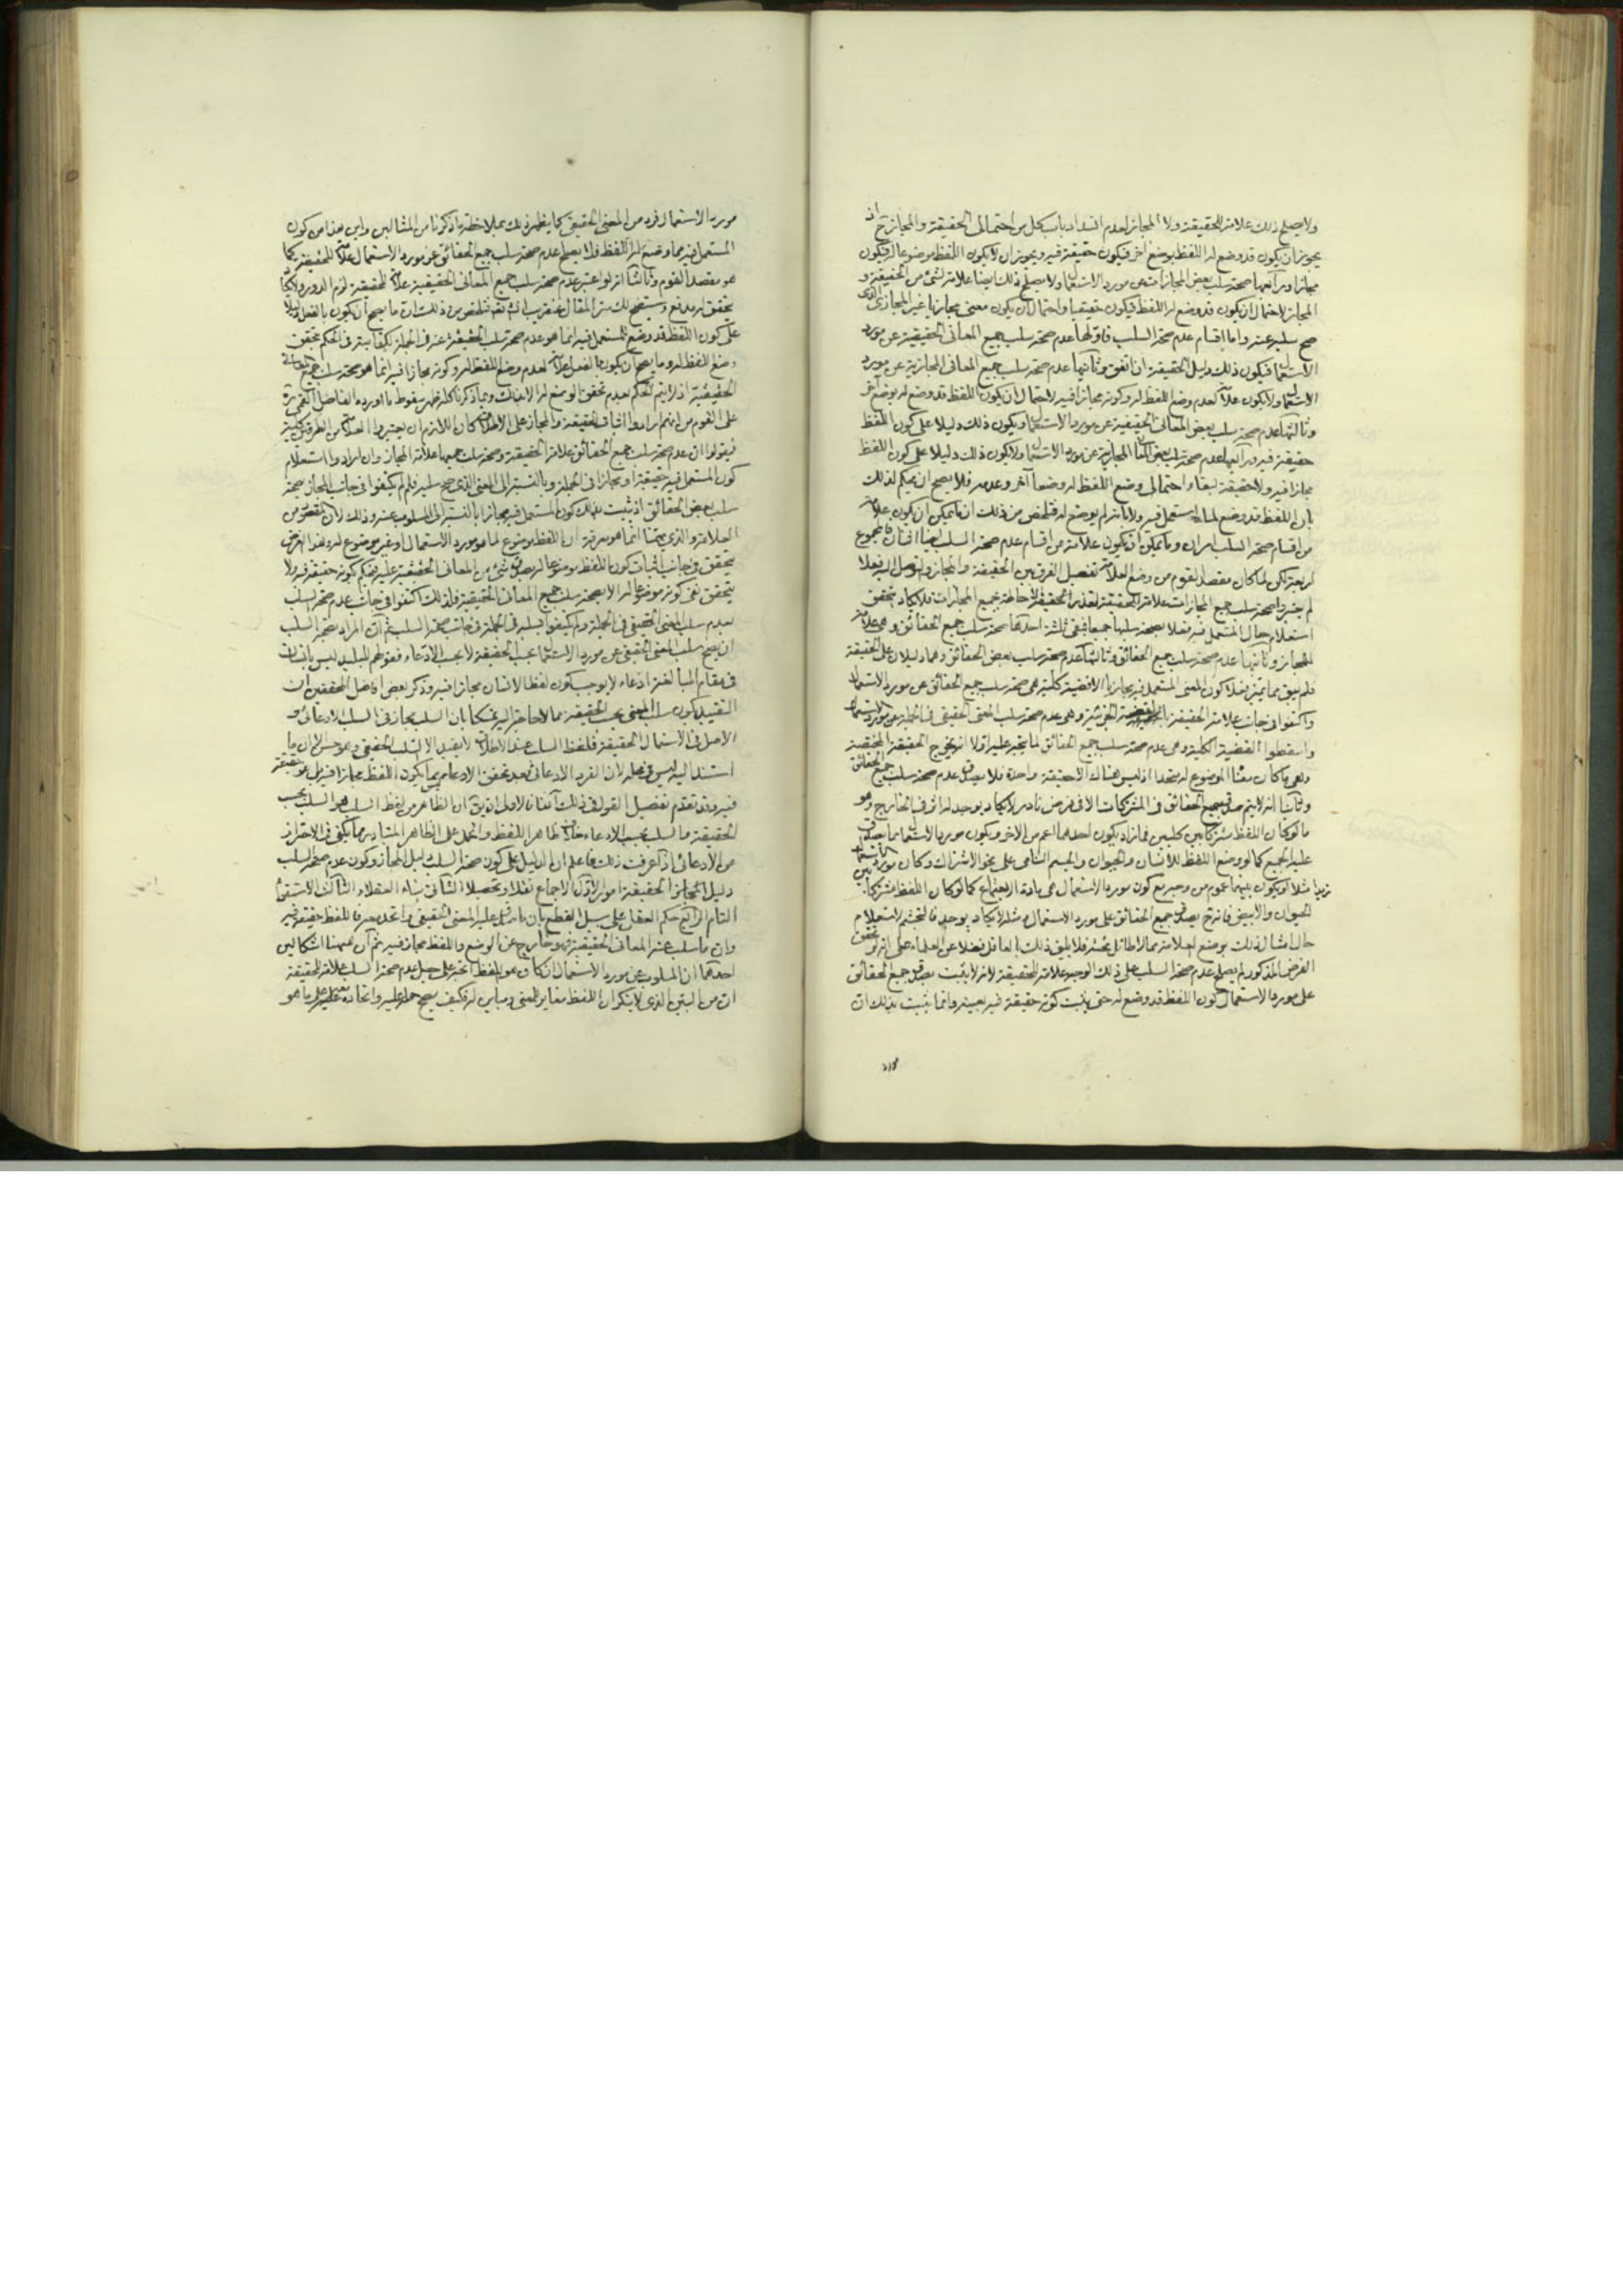 ولا يصلح ذلك علامة للحقيقة ولا المجاز لعدم انسداد باب كل من احتمالي الحقيقة والمجاز ح اذ
يجوز ان يكون قد وضع له اللفظ بوضع اخر فيكون حقيقة فيه ويجوز ان لا يكون اللفظ موضوعا له فيكون
مجازا ورابعها صحة سلب بعض المجازات عن مورد الاستعمال ولا يصلح ذلك ايضا علامة لشئ من الحقيقة و
المجاز لاحتمال ان يكون قد وضع له اللفظ فيكون حقيقيا واحتمال ان يكون معنى مجازيا غير المجازي الذى
صح سلبه عنه واما اقسام عدم صحة السلب فاولها عدم صحة سلب جميع المعاني الحقيقية عن مورد
الاستعمال فيكون ذلك دليل الحقيقة ان اتفق وثانيها عدم صحة سلب جميع المعاني المجازية عن مورد
الاستعمال ولا يكون علامة لعدم وضع اللفظ له وكونه مجازا فيه لاحتمال ان يكون اللفظ قد وضع له بوضع آخر
وثالثها عدم صحة سلب بعض المعاني الحقيقية عن مورد الاستعمال ويكون ذلك دليلا على كون اللفظ
حقيقة فيه ورابعها عدم صحة سلب بعض المعاني المجازية عن مورد الاستعمال ولا يكون ذلك دليلا على كون اللفظ
مجازا فيه ولا حقيقة لبقاء احتمالي وضع اللفظ له وضعا آخر وعدمه فلا يصح ان يحكم لذلك
بان اللفظ قد وضع لما استعمل فيه ولا بانه لم يوضع له فتلخص من ذلك ان ما يمكن ان يكون علامة
من اقسام صحة السلب امران وما يمكن ان يكون علامة من اقسام عدم صحة السلب ايضا اثنان فالمجموع
اربعة لكن لما كان مقصد القوم من وضع العلامة تفصيل الفرق بين الحقيقة والمجاز والتوصل اليه فعلا
لم يعتبروا صحة سلب جميع المجازات علامة للحقيقة لتعذر الحقيقة الاحاطة بجميع المجازات فلا يكاد يتحقق
استعلام حال المستعمل فيه فعلا بصحة سلبها جميعا فبقى ثلثة احدها صحة سلب جميع الحقائق وهي علامة
للمجاز وثانيها عدم صحة سلب جميع الحقائق وثالثها عدم صحة سلب بعض الحقائق وهما دليلان على الحقيقة
فلم يبق مما يتميز فعلا كون المعنى المستعمل فيه مجازيا الا قضية كلية هى صحة سلب جميع الحقائق عن مورد الاستعمال
واكتفوا في جانب علامة الحقيقة بالقضية الجزئية وهى عدم صحة سلب المعنى الحقيقى في الجملة عن مورد الاستعمال
واسقطوا القضية الكلية وهى عدم صحة سلب جميع الحقائق لما يتجه عليه اولا انه يخرج الحقيقة المختصة
وهى ما كان معنا الموضوع له متحدا اذ ليس هناك الا حقيقة واحدة فلا يصدق عدم صحة سلب جميع الحقائق
وثانيا انه لا يتم صدق جميع الحقائق في المشتركات الا في فرض نادر لا يكاد يوجد له اثر في الخارج وهو
ما لو كان اللفظ مشتركا بين كليين فما زاد يكون احدهما اعم من الاخر ويكون مورد الاستعمال مما يصدق
عليه الجميع كما لو وضع اللفظ للانسان والحيوان والجسم النامى على نحو الاشتراك وكان مورد الاستعمال
زيدا مثلا او يكون بينهما عموم من وجه مع كون مورد الاستعمال هى مادة الاجتماع كما لو كان اللفظ مشتركا بين
الحيوان والابيض فانه ح يصدق جميع الحقائق على مورد الاستعمال ومثله لا يكاد يوجد فالتجشم لاستعلام
حال امثال ذلك بوضع العلامة مما لا طائل تحته فلا يليق ذلك بالعاقل فضلا عن العلماء على انه لو تحقق
الفرض المذكور لم يصلح عدم صحة السلب على ذلك الوجه علامة للحقيقة لانه لا يثبت بصدق جميع الحقائق
على مورد الاستعمال كون اللفظ قد وضع له حتى يثبت كونه حقيقة فيه بعينه وانما يثبت بذلك ان
مورد الاستعمال فرد من المعنى الحقيقي كما يظهر ذلك بملاحظة ما ذكرنا من المثالين واين هذا من كون
المستعمل فيه مما وضع له اللفظ فلا يصلح عدم صحة سلب جميع الحقائق عن مورد الاستعمال علامة للحقيقة كما
هو مقصد القوم وثالثا انه لو اعتبر عدم صحة سلب جميع المعاني الحقيقية علامة للحقيقة لزم الدور ولا يكاد
يتحقق له مدفع وستضح لك سر المقال عن قريب انشاء الله تعالى فتلخص من ذلك ان ما يصح ان يكون بالفعل دليلا
على كون اللفظ قد وضع للمستعمل فيه انما هو عدم صحة سلب الحقيقة عنه في الجملة لكفايته في الحكم بتحقق
وضع اللفظ له وما يصح ان يكون بالفعل علامة لعدم وضع اللفظ له وكونه مجازا فيه انما هو صحة سلب جميع المعاني
الحقيقية اذ لا يتم الحكم بعدم تحقق الوضع له الا بذلك وبما ذكرنا كله ظهر سقوط ما اورده الفاضل القمى ره
على القوم من انهم ان ارادوا اثبات الحقيقة والمجاز على الاطلاق كان اللازم ان يعتبروا العلامة من الطرفين كلية
فيقولوا ان عدم صحة سلب جميع الحقائق علامة الحقيقة وصحة سلب جميعها علامة المجاز وان ارادوا استعلام
كون المستعمل فيه حقيقة او مجازا في الجملة وبالنسبة الى المعنى الذى صح سلبه فلم لم يكتفوا في جانب المجاز بصحة
سلب بعض الحقائق اذ يثبت بذلك كون المستعمل فيه مجازا بالنسبة الى المسلوب عنه وذلك لان المقصود من
العلامة والذى يهمنا انما هو معرفة ان اللفظ موضوع لما هو مورد الاستعمال او غير موضوع له وهذا الغرض
يتحقق في جانب اثبات كون اللفظ موضوعا له بصدق شئ من المعاني الحقيقية عليه فيحكم بكونه حقيقة فيه ولا
يتحقق نفى كونه موضوعا له الا بصحة سلب جميع المعاني الحقيقية فلذلك اكتفوا في جانب عدم صحة السلب
بعدم سلب المعنى الحقيقي في الجملة ولم يكتفوا بسلبه في الجملة في جانب صحة السلب ثم ان المراد بصحة السلب
ان يصح سلب المعنى الحقيقي عن مورد الاستعمال بحسب الحقيقة لا بحسب الادعاء فقولهم للبليد ليس بانسان
في مقام المبالغة ادعاء لا يوجب كون لفظ الانسان مجازا فيه وذكر بعض افاضل المحققين ان
التقييد بكون سلب المعنى بحسب الحقيقة مما لا حاجة اليه متمسكا بان السلب مجاز في السلب الادعائى و
الاصل في الاستعمال الحقيقة فلفظ السلب عند الاطلاق لا يفيد الا السلب الحقيقي وهو حسن الا ان ما
استند اليه ليس في محله لان الفرد الادعائى بعد تحقق الادعاء مما يكون اللفظ مجازا فيه بل هو حقيقة
فيه وقد تقدم تفصيل القول في ذلك آنفا فالاولى ان يق ان الظاهر من لفظ السلب هو السلب بحسب
الحقيقة والسلب بحسب الادعاء خلاف ظاهر اللفظ والحمل على الظاهر المتبادر مما يكفى في الاحتراز
عن الادعائى اذا عرفت ذلك فاعلم ان الدليل على كون صحة السلب دليل المجاز وكون عدم صحة السلب
دليل الحقيقة امور الاول الاجماع نقلا وتحصيلا الثاني بناء العقلاء الثالث الاستقراء
التام الرابع حكم العقل على سبيل القطع بان ما حمل عليه المعنى الحقيقي واتحد معه فاللفظ حقيقة فيه
وان ما سلب عنه المعاني الحقيقية فهو خارج عن الوضع واللفظ مجاز فيه ثم ان هيهنا اشكالين
احدهما ان المسلوب عن مورد الاستعمال ان كان هو اللفظ اتجه على جعل عدم صحة السلب علامة للحقيقة
ان من البين الذى لا ينكر ان اللفظ مغاير للمعنى ومباين له فكيف يصح حمله عليه واتحاده معه على ما هو